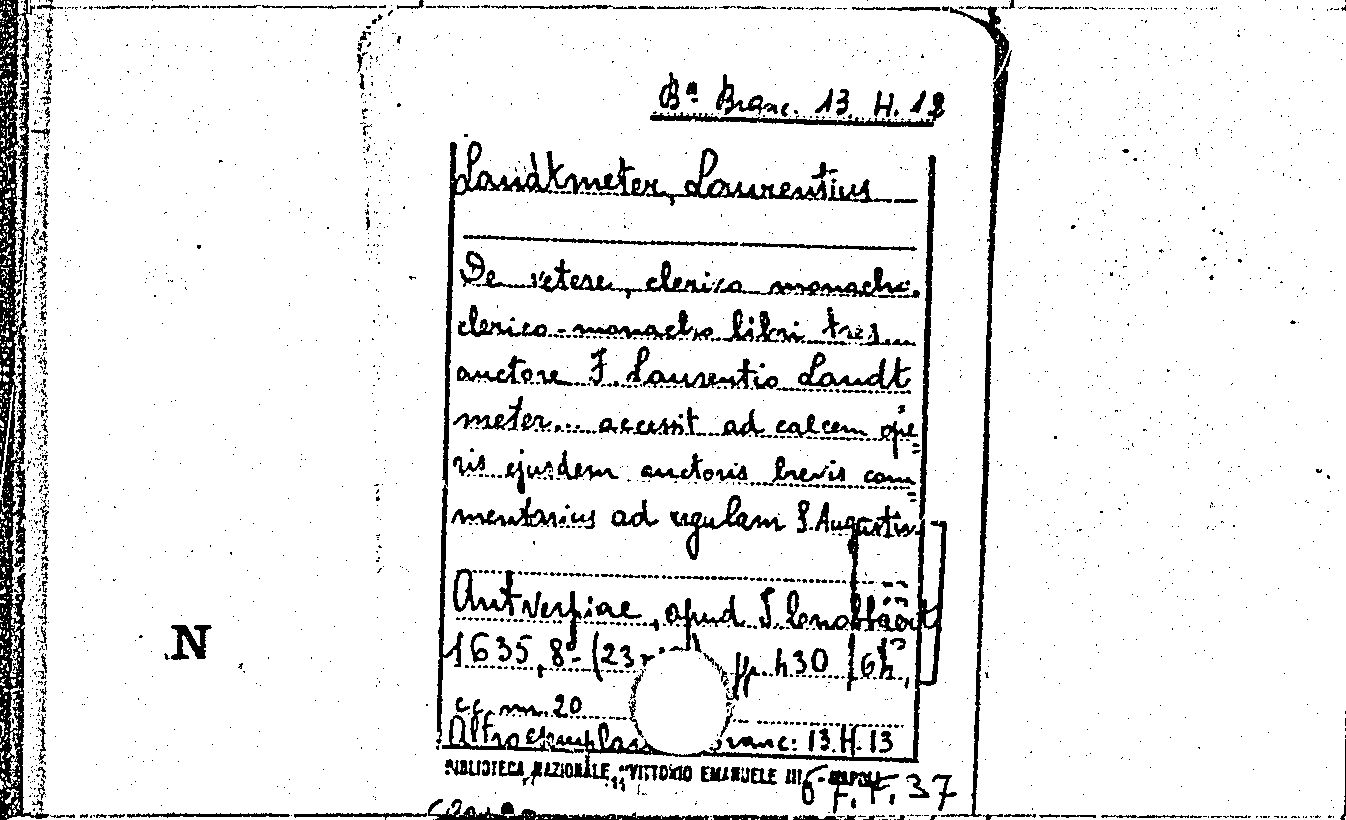 Bª Branc. 13. H. 12
Landtmeter, Laurentius
De vetere, clerico monacho.
clerico-monacho libri tres...
auctore F. Laurentio Landt
meter... accessit ad calcem ope=
ris ejusdem auctoris brevis com=
mentarius ad regulam S. Augustin.
Antverpiae, apud J. Cnobbaert
1635, 8º (23 pp. 430
cc. nn. 20
Altro esemplare Branc: 13.H.13
BIBLIOTECA NAZIONALE "VITTORIO EMANUELE III" - NAPOLI
N
F. 37